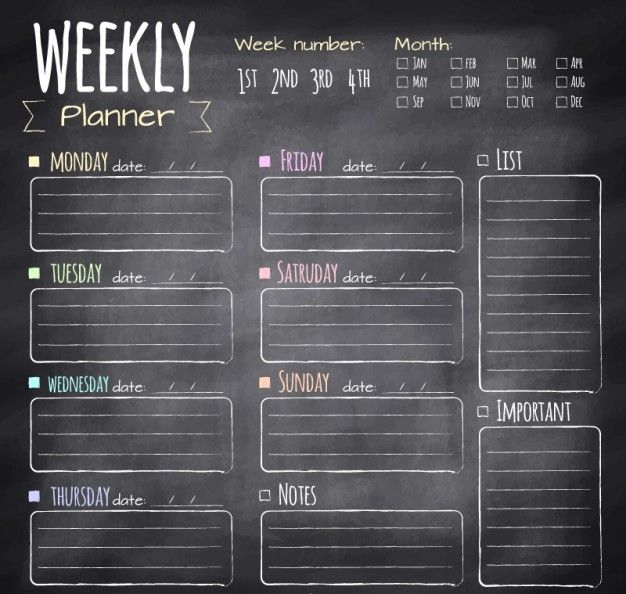 WEEKLY
Planner
Week number:
1ST 2ND 3RD 4TH
Month:
JAN FEB MAR APR
MAY JUN JUL AUG
SEP NOV OCT DEC
MONDAY date: / /
TUESDAY date: / /
WEDNESDAY date: / /
THURSDAY date: / /
FRIDAY date: / /
SATRUDAY date: / /
SUNDAY date: / /
NOTES
LIST
IMPORTANT